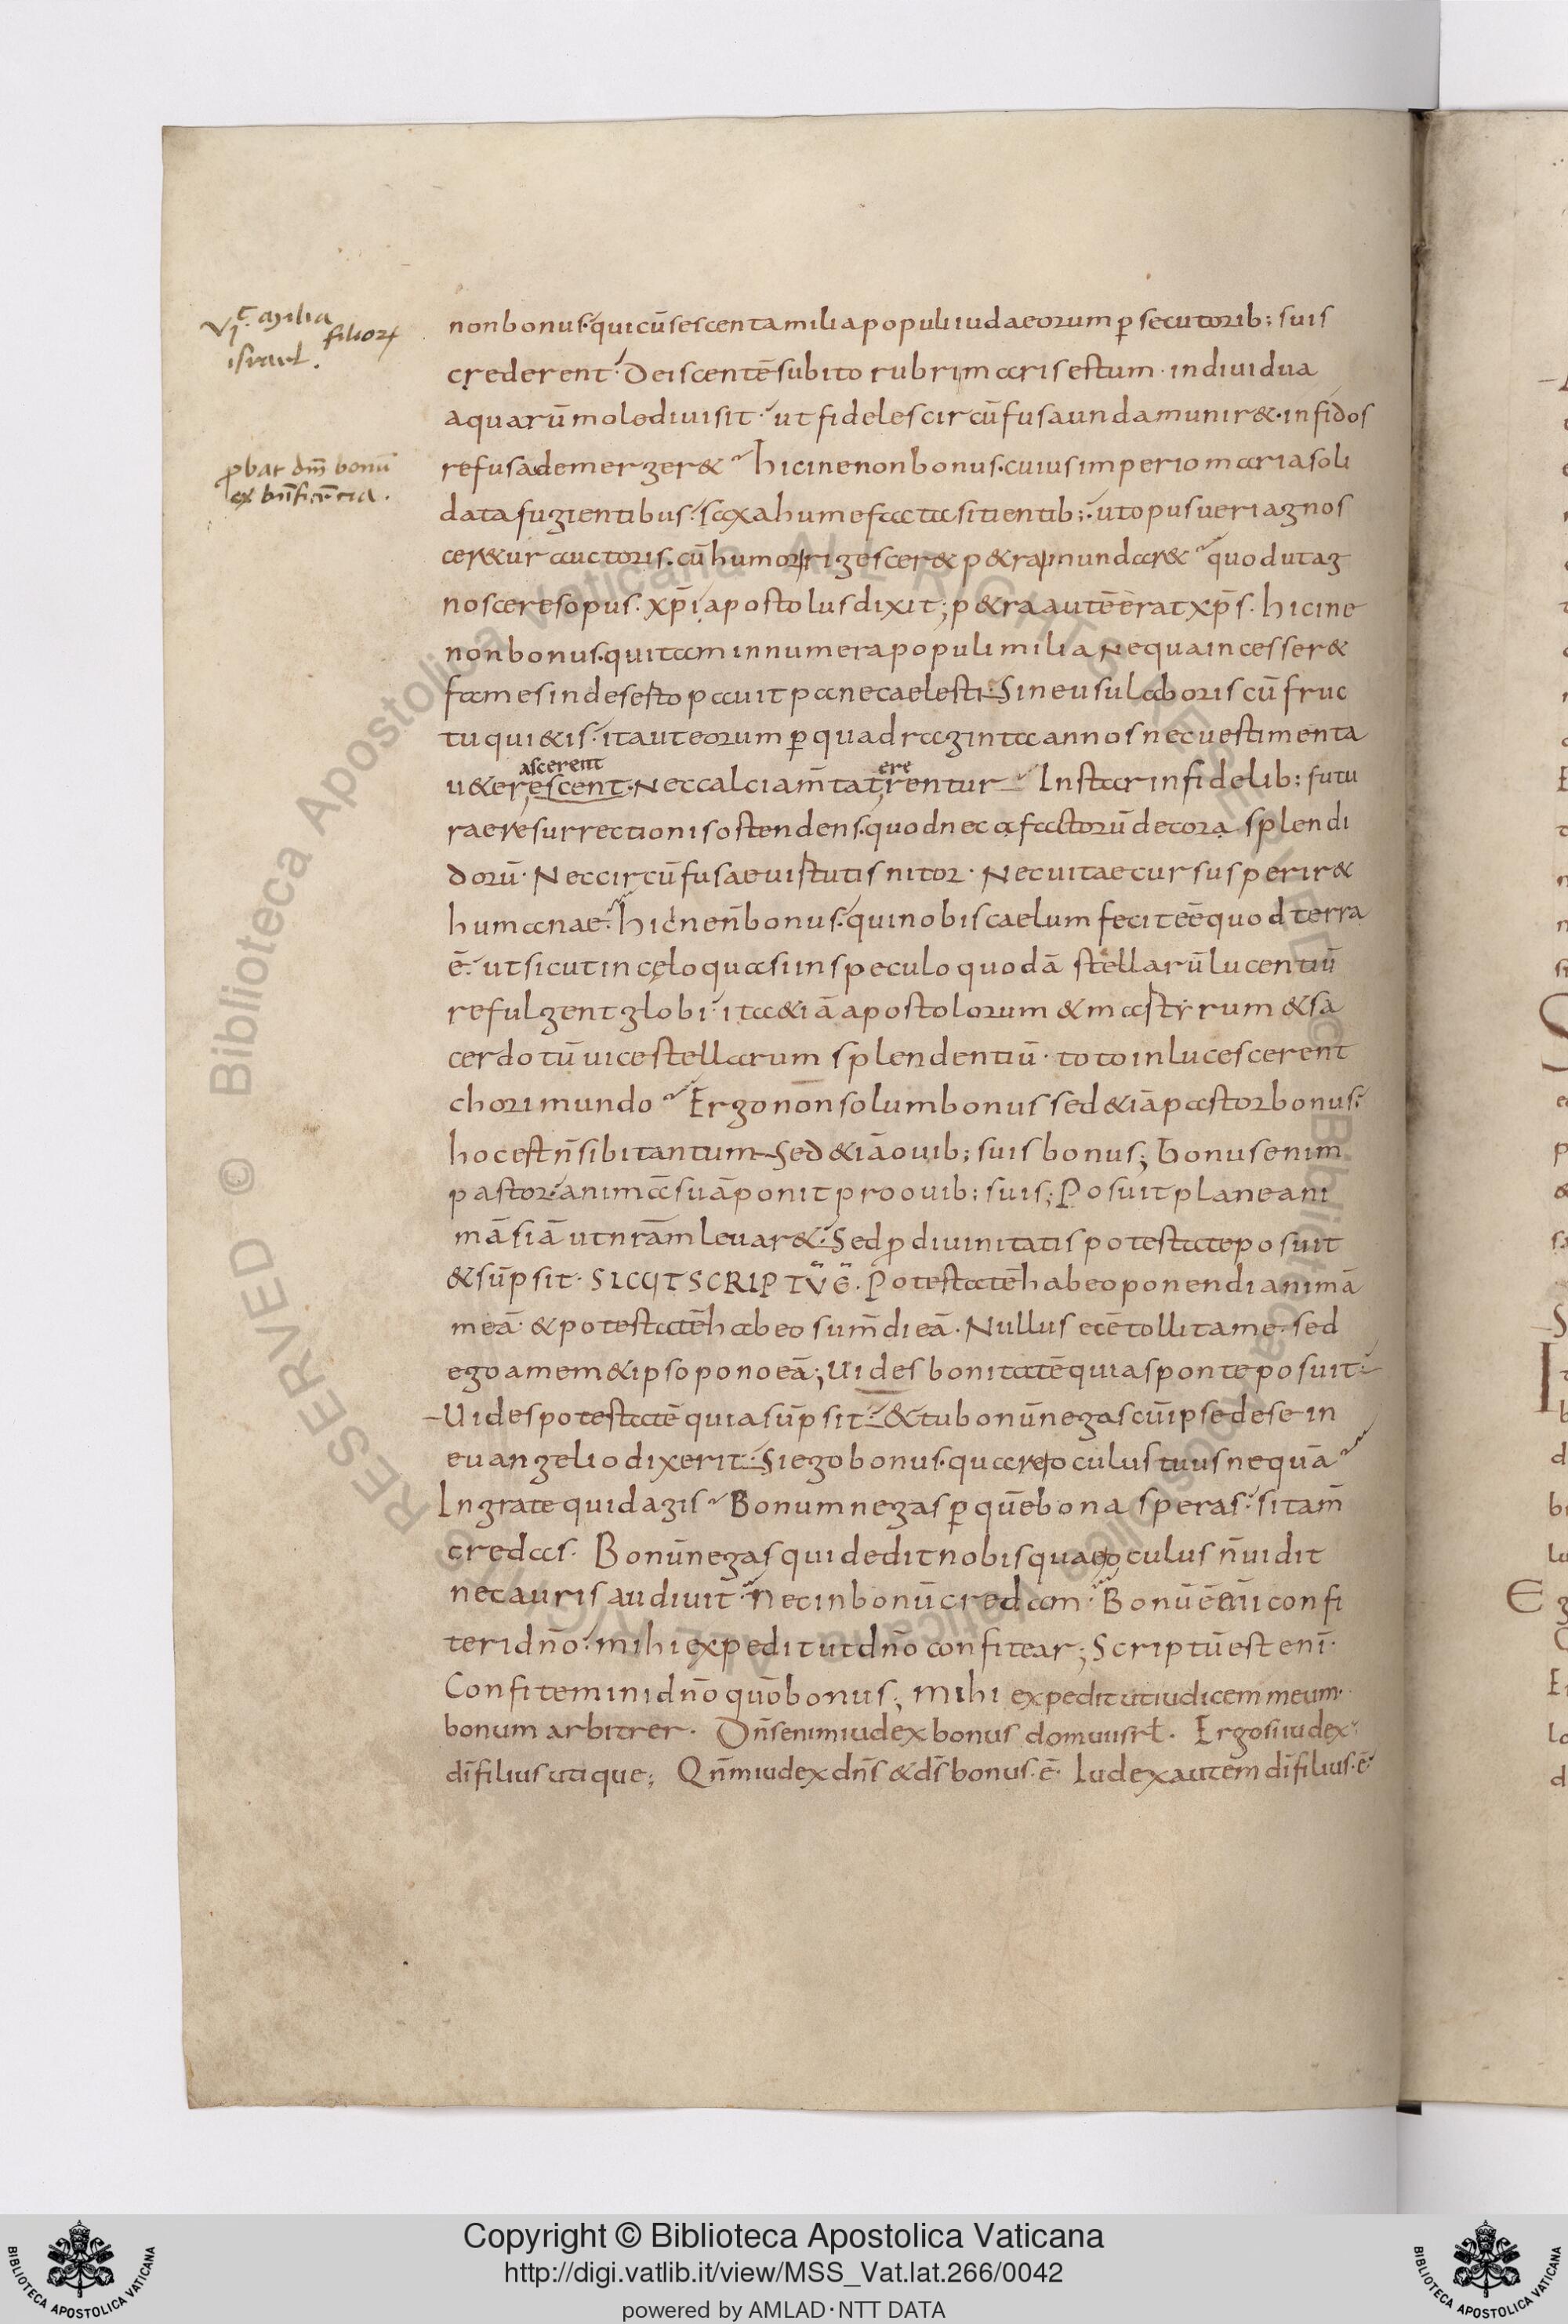 VI c. milia filiorꝝ
israel.
ꝓbat dm̄ bonū
ex bn̄ficētia.
non bonus· qui cū sescenta milia populi iudaeorum ꝑsecutorib; suis
crederent· Deiscentē subito rubri maris estum· individua
aquarū mole divisit· ut fideles circūfusa unda munir&· infidos
refusa demerger& hicine non bonus· cuius imperio maria soli
data fugientibus· saxa humefacta sitientib;· ut opus veri agnos
cer&ur auctoris· cū humor rigescer& p&ra inundar& quod ut ag
nosceres opus· xp̄i apostolus dixit; p&ra autē erat xp̄s· hicine
non bonus· qui tam innumera populi milia Nequa incesser&
fames in deserto pavit pane caelesti· Sine usu laboris cū fruc
tu qui&is· ita ut eorum ꝑ quadraginta annos nec vestimenta
ascerent ere
u&erescent· Nec calciam̄ta trentur Instar infidelib; futu
rae resurrectionis ostendens· quod nec a factorū decora splendi
dorū· Nec circūfusae uistutis nitor· Nec uitae cursus perir&
humanae· hicine n̄ bonus· qui nobis caelum fecit eē quod terra
ē· ut sicut in cęlo quasi in speculo quodā stellarū lucentiū
refulgent globi· ita &iā apostolorum & mastyrum & sa
cerdotū vice stellarum splendentiū· toto inlucescerent
chori mundo Ergo non solum bonus sed &iā pastor bonus·
hoc est n̄ sibi tantum Sed &iā ovib; suis bonus; bonus enim
pastor· animā suā ponit pro ovib; suis; Posuit plane ani
mā siā ut nr̄am levar&· Sed ꝓ divinitatis potestate posuit
& sūpsit· SICUT SCRIPTŪ Ē· Potestatē habeo ponendi animā
meā· & potestatē habeo sum̄di eā· Nullus ecē tollit a me· sed
ego a mem&ipso pono eā; Vides bonitatē quia sponte posuit·
Vides potestatē quia sūpsit· & tu bonū negas cū ipse de se in
euangelio dixerit· Si ego bonus· quare oculus tuus nequā
Ingrate quid agis Bonum negas ꝑ quē bona speras· si tam̄
credas· Bonū negas qui dedit nobis quae oculus n̄ vidit
nec auris audivit· Nec in bonū credam· Bonū ē eni confi
teri dn̄o· mihi expedit ut dn̄o confitear; Scriptū est enī·
Confitemini dn̄o quō bonus; mihi expedit ut iudicem meum·
bonum arbitrer· Dn̄s enim iudex bonus domui isrl· Ergo si iudex·
dī filius utique; Qn̄m iudex dn̄s & ds̄ bonus· ē· Iudex autem dī filius· ē·
© Biblioteca Apostolica Vaticana ALL RIGHTS RESERVED
© Biblioteca Apostolica Vaticana ALL RIGHTS RESERVED
Copyright © Biblioteca Apostolica Vaticana
http://digi.vatlib.it/view/MSS_Vat.lat.266/0042
powered by AMLAD·NTT DATA
BIBLIOTECA APOSTOLICA VATICANA
BIBLIOTECA APOSTOLICA VATICANA